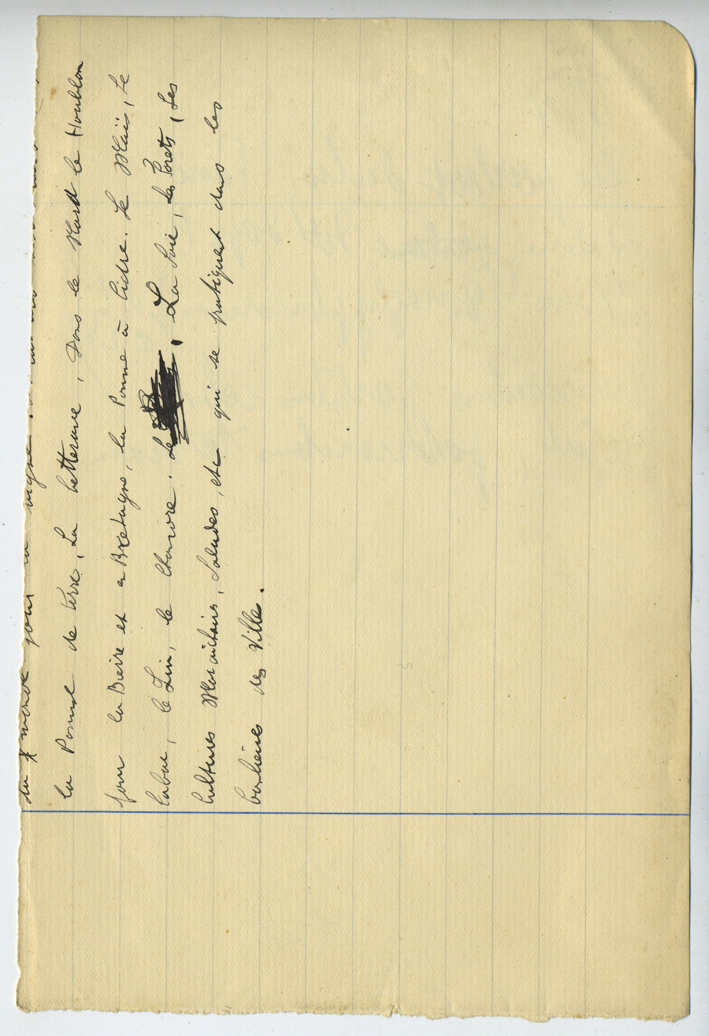 du monde pour la vigne
la Pomme de terre, La betterave, Dans le Nord le Houblon
pour la Bière et en Bretagne, la Pomme à Cidre. Le Maïs, Le
tabac, le Lin, le Chanvre. La Soie, les Forets, Les
Cultures Maraichaires, Salades, etc qui se pratiquent dans les
banlieues des Villes.